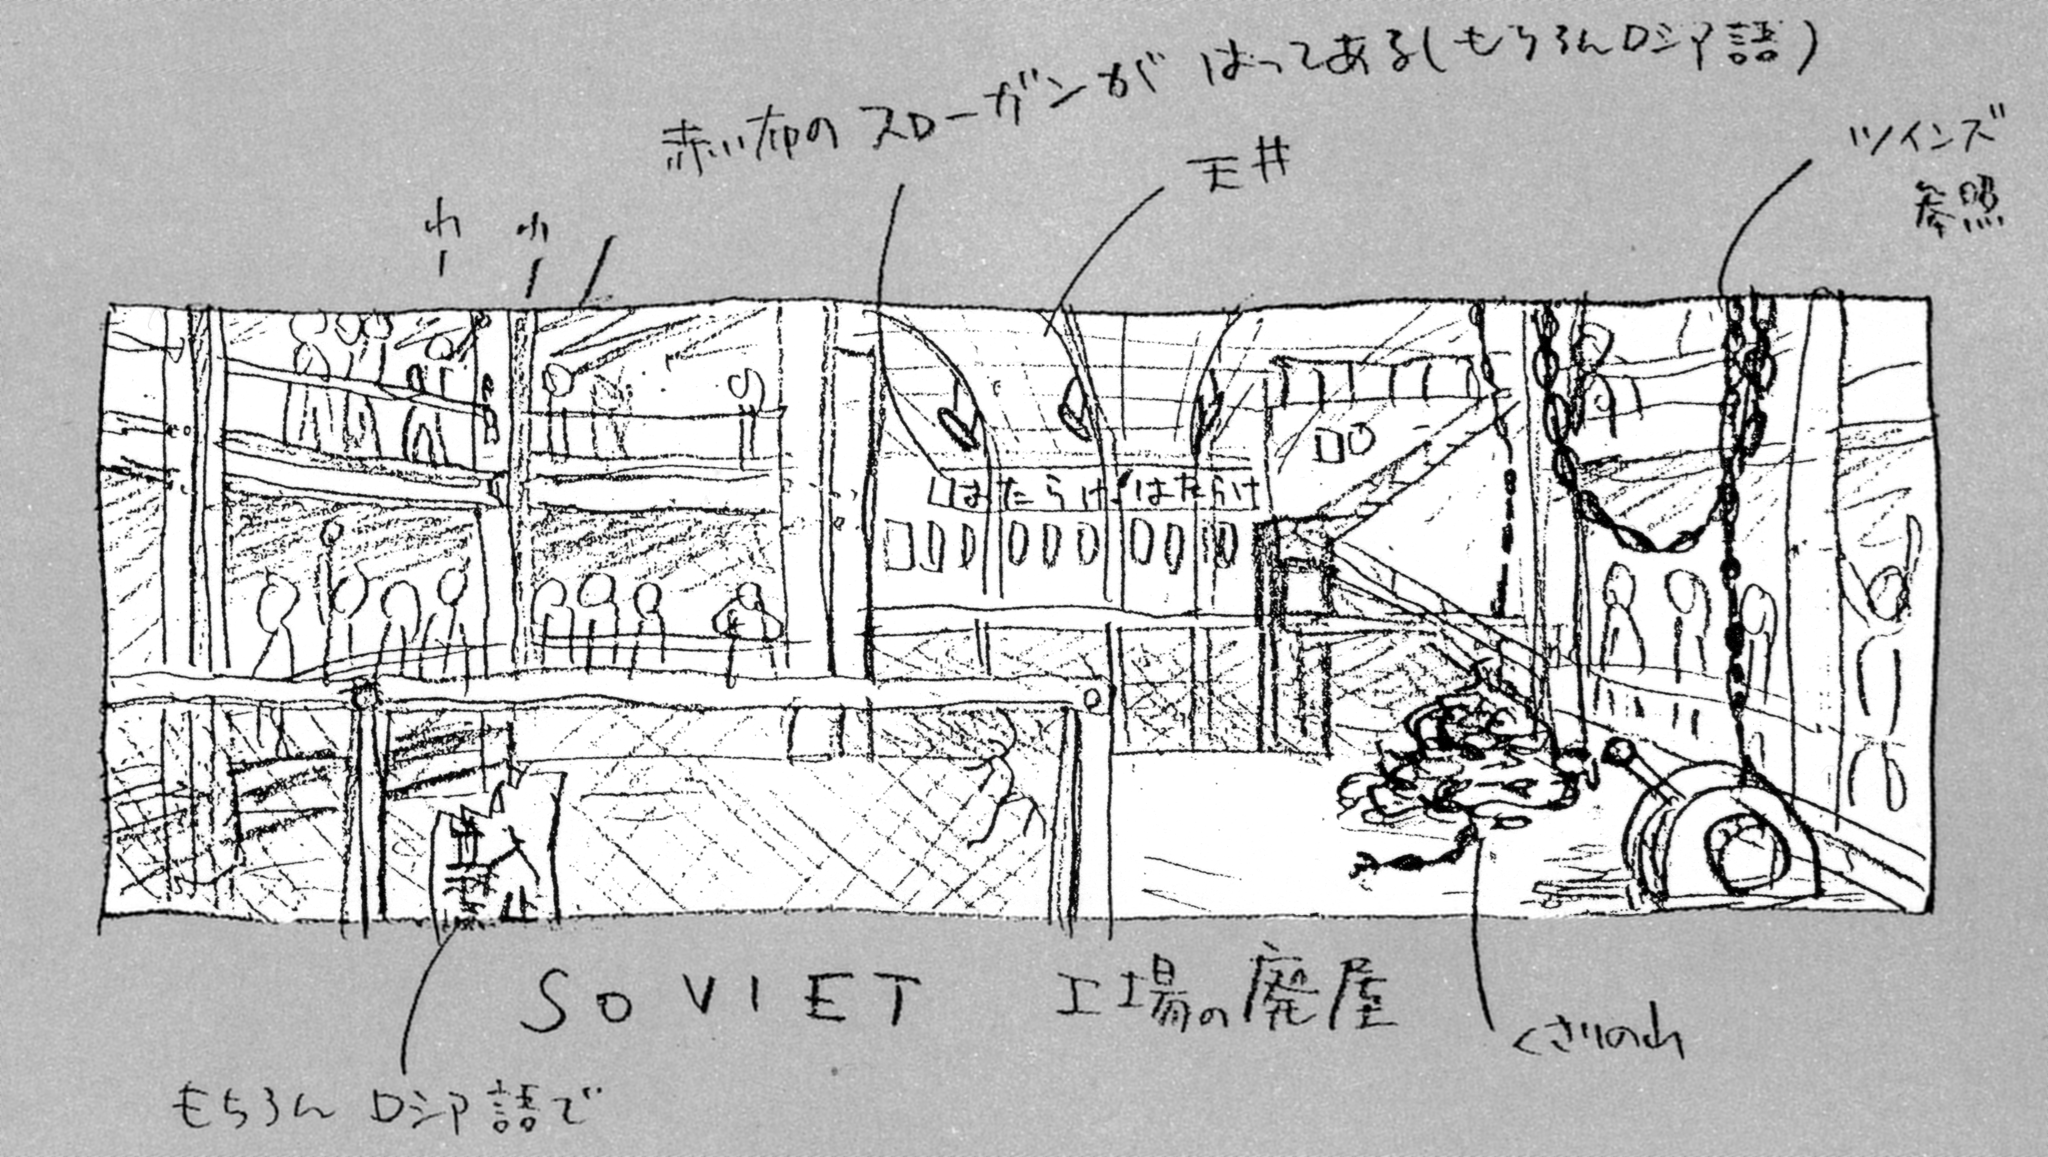 赤い布のスローガンがはってある(もちろんロシア語)
天井
ツインズ
参照
はたらけ!はたらけ
SOVIET 工場の廃屋
くさりの山
もちろんロシア語で